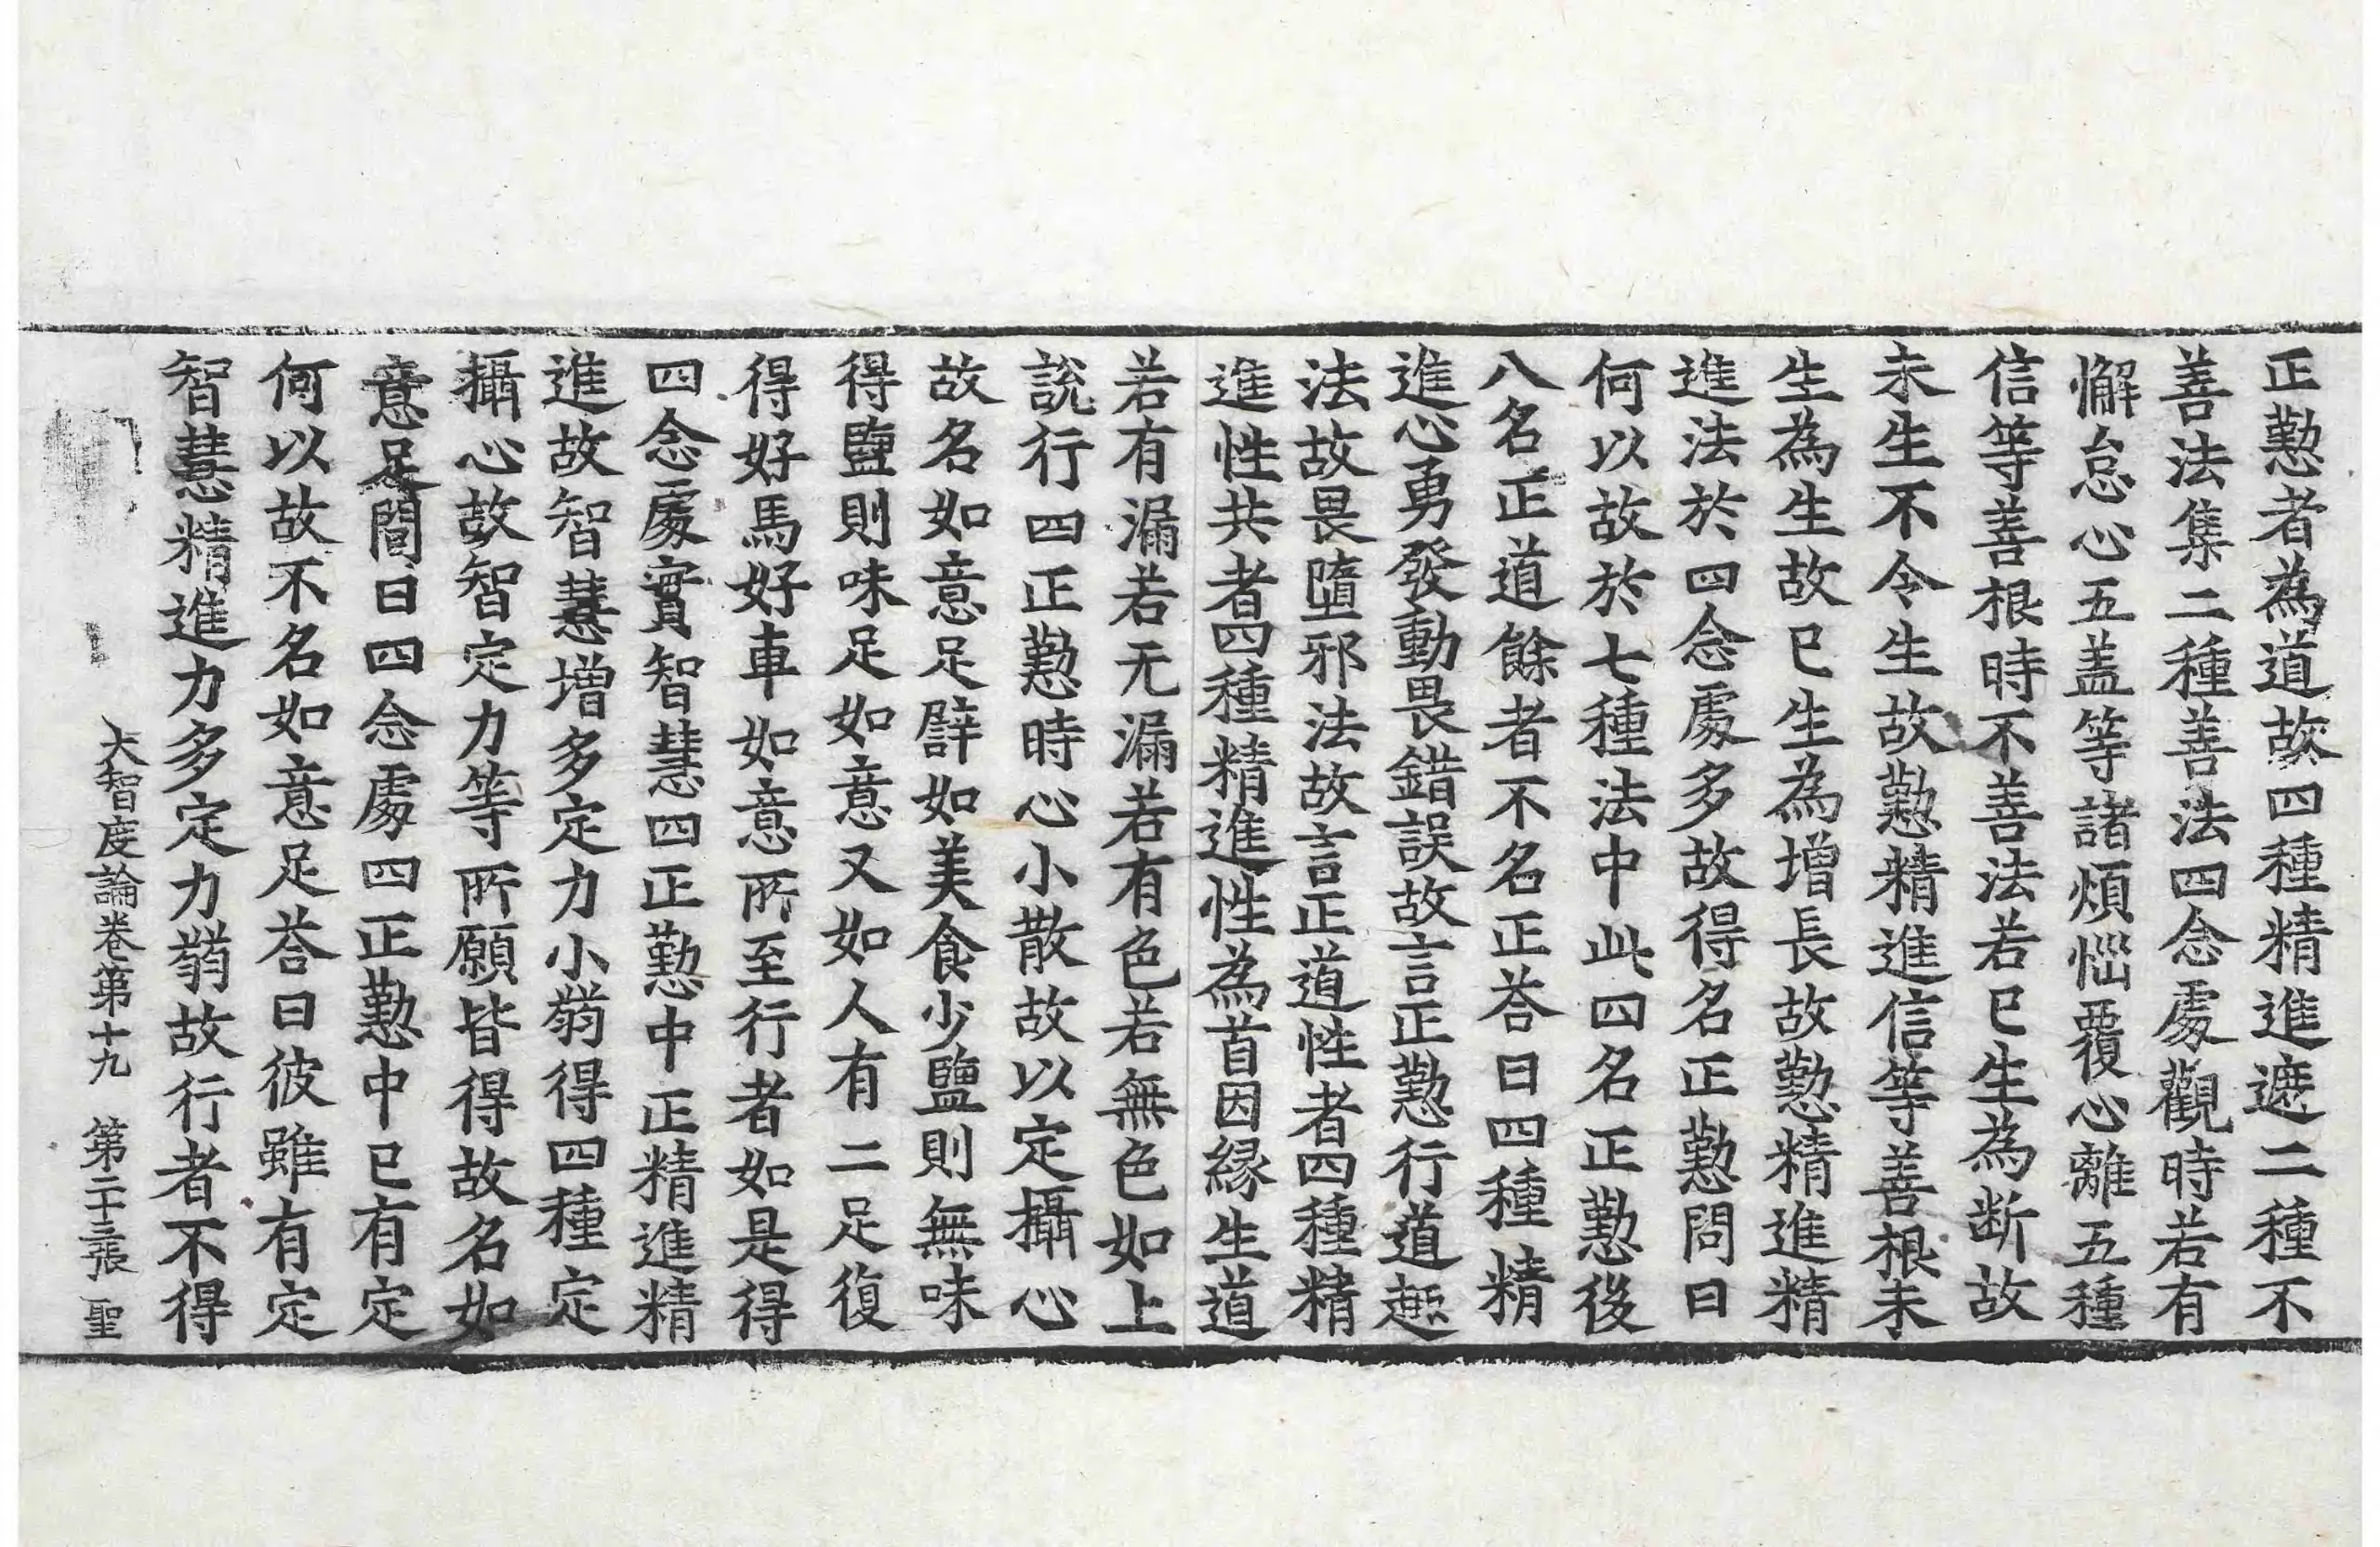 正懃者為道故四種精進遮二種不
善法集二種善法四念處觀時若有
懈怠心五盖等諸煩惱覆心離五種
信等善根時不善法若已生為断故
未生不令生故懃精進信等善根未
生為生故已生為增長故懃精進精
進法於四念處多故得名正懃問曰
何以故於七種法中此四名正懃後
八名正道餘者不名正荅曰四種精
進心勇發動畏錯誤故言正懃行道趣
法故畏墮邪法故言正道性者四種精
進性共者四種精進性為首因緣生道
若有漏若无漏若有色若無色如上
說行四正懃時心小散故以定攝心
故名如意足譬如美食少鹽則無味
得鹽則味足如意又如人有二足復
得好馬好車如意所至行者如是得
四念處實智慧四正懃中正精進精
進故智慧增多定力小弱得四種定
攝心故智定力等所願皆得故名如
意足問曰四念處四正懃中已有定
何以故不名如意足荅曰彼雖有定
智慧精進力多定力弱故行者不得
大智度論卷第十九 第二十三張 聖